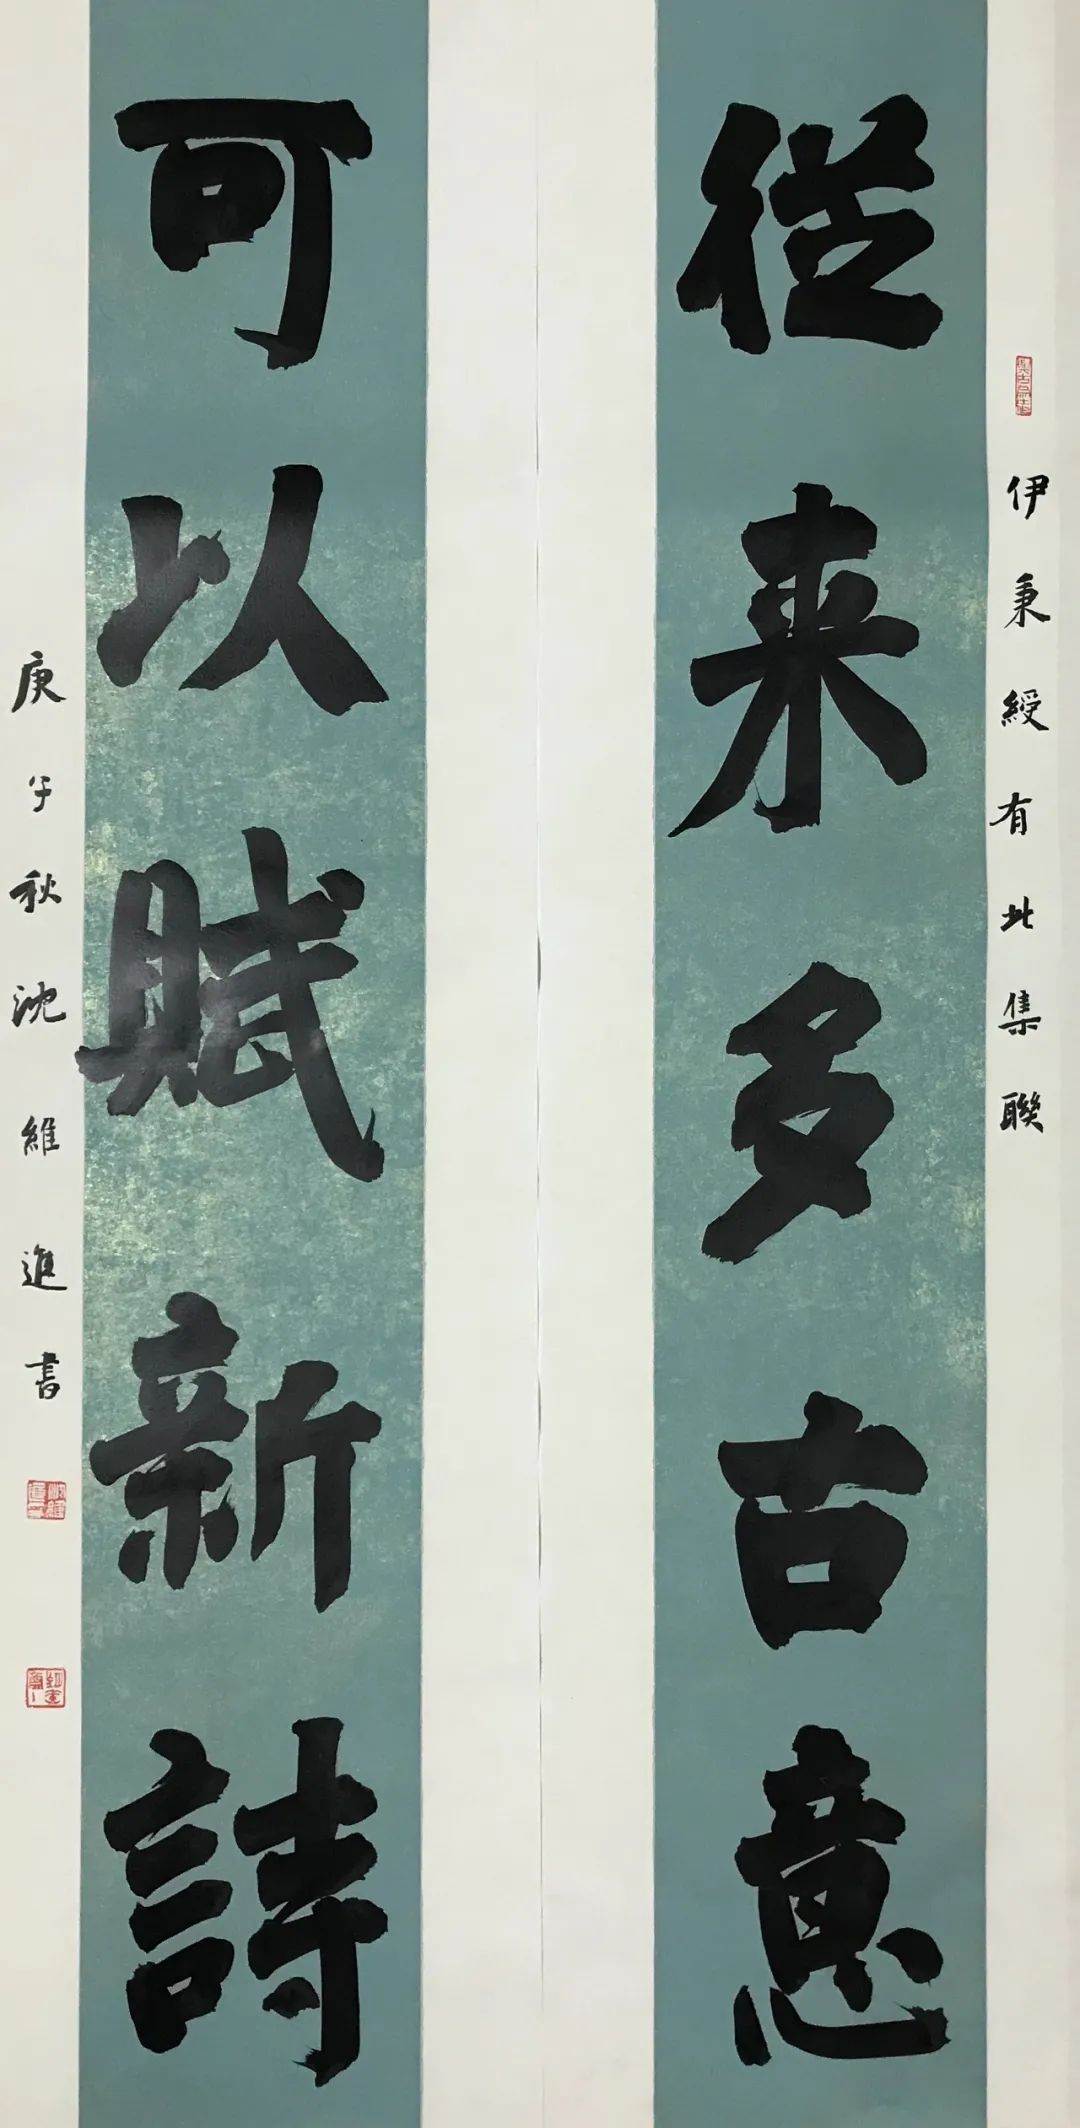 從来多古意
可以賦新詩
伊秉綬有此集聯
庚子秋沈維進書